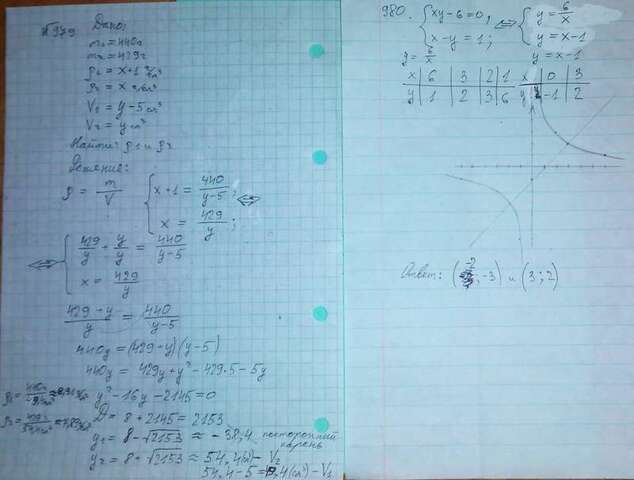 №979 Дано:
m₁=440г
m₂=429г
ρ₁ = x+1 г/см³
ρ₂ = x г/см³
V₁ = y-5 см³
V₂ = y см³
Найти: ρ₁ и ρ₂
Решение:
ρ = m/V { x+1 = 440/(y-5); ⇔
x = 429/y;
⇔ { 429/y + y/y = 440/(y-5)
x = 429/y
(429-y)/y = 440/(y-5)
440y = (429-y)(y-5)
440y = 429y+y²-429·5-5y
y²-16y-2145=0
D = 8+2145=2153
y₁ = 8-√2153 ≈ -38,4 посторонний корень
y₂ = 8+√2153 ≈ 54,4(см³) - V₂
54,4-5 = 49,4(см³) - V₁
980. { xy-6=0; ⇔ { y = 6/x
x-y=1; y=x-1
y = 6/x y = x-1
x 6 3 2 1 x 0 3
y 1 2 3 6 y -1 2
Ответ: (-2; -3) и (3; 2)